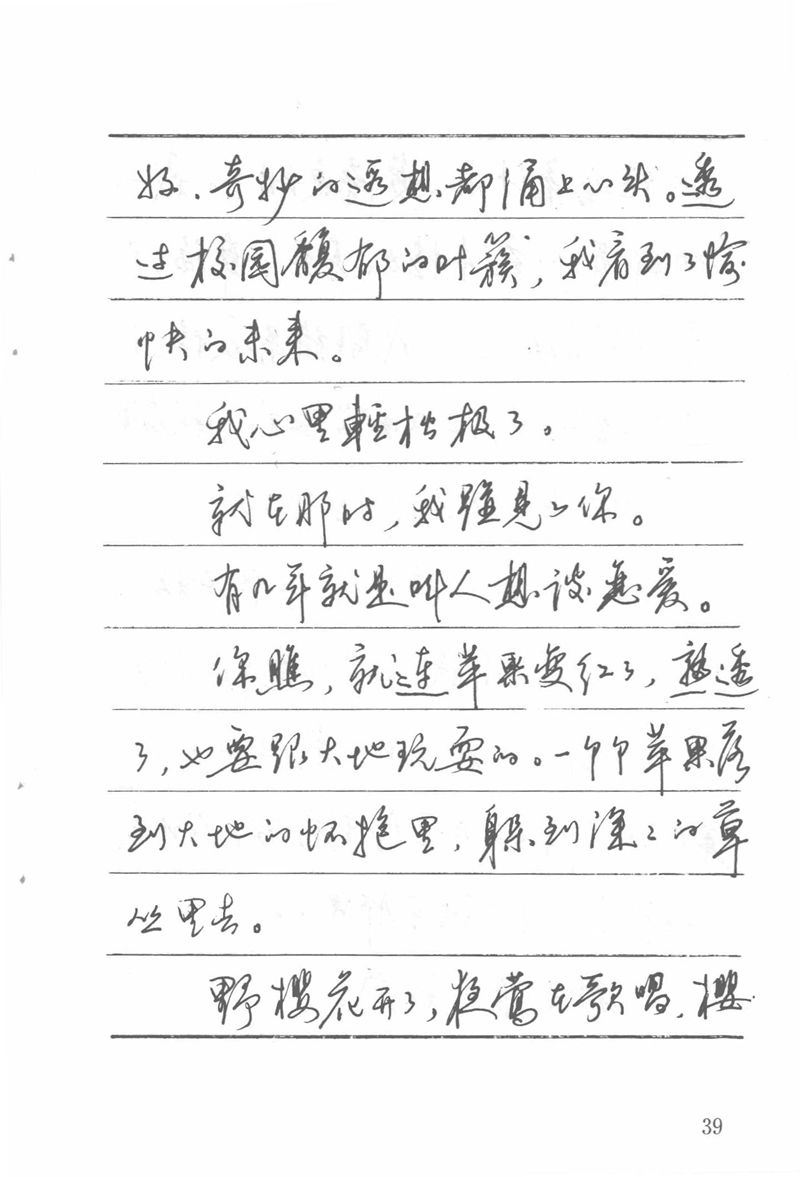 好、奇妙的遐想都涌上心头。透
过校园馥郁的叶簇，我看到了愉
快的未来。
我心里輕松极了。
就在那时，我碰見了你。
有几年就是叫人想談恋爱。
你瞧，就连苹果变红了，熟透
了，也要跟大地玩耍的。一个个苹果落
到大地的怀抱里，躲到深深的草
丛里去。
野樱花开了，夜莺在歌唱，樱
39